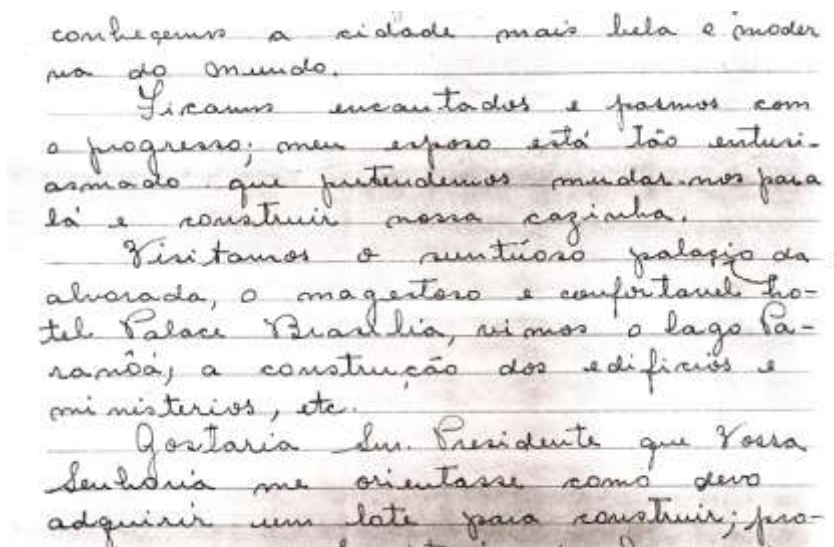 conheçemos a cidade mais bela e moder
na do mundo.
Ficamos encantados e pasmos com
o progresso; meu esposo está tão entusi-
asmado que pretendemos mudar-nos para
lá e construir nossa cazinha.
Visitamos o suntúoso palaçio da
alvorada, o magestoso e confortavel ho-
tel Palace Brasilia, vimos o lago Pa-
ranôá, a construção dos edificios e
ministerios, etc.
Gostaria Snr. Presidente que Vossa
Senhoria me orientasse como devo
adquirir um lote para construir; pro-